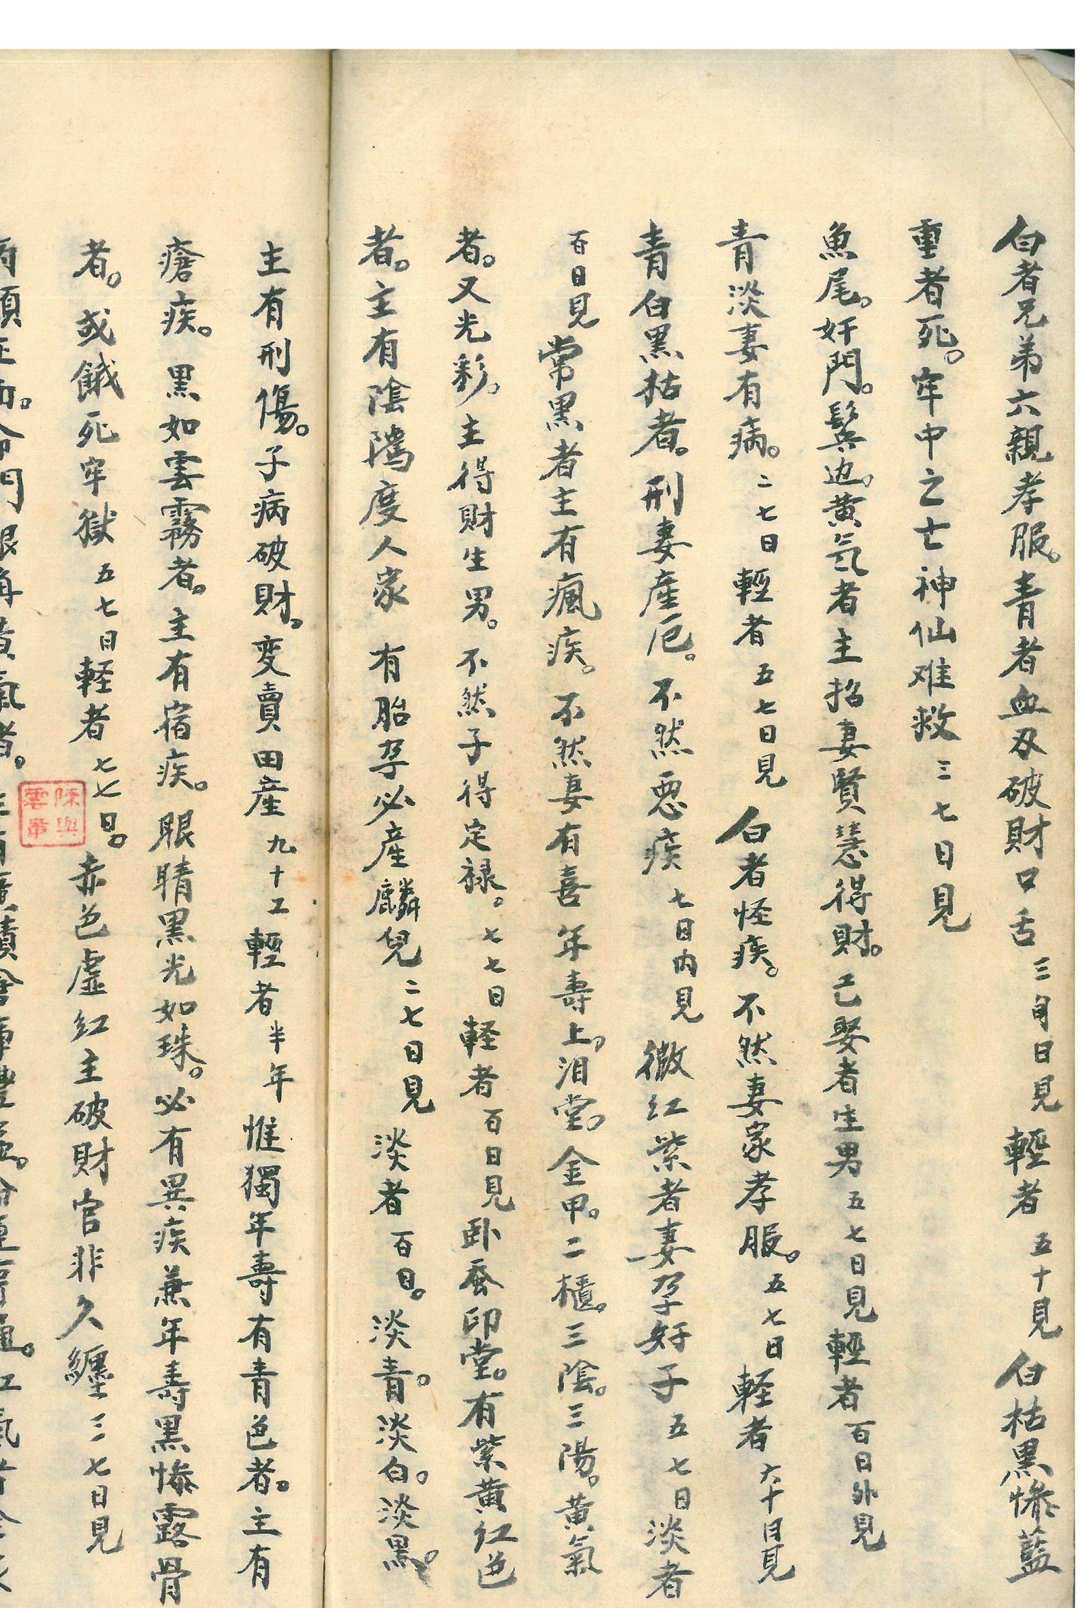 白者兄弟六親孝服。青者血刃破財口舌三旬日見輕者五十見白枯黑慘藍
重者死。牢中之亡神仙难救三七日見
魚尾。奸門。鬂边。黃气者主招妻賢慧得財。已娶者生男五七日見輕者百日外見
青淡妻有病。二七日輕者五七日見白者怪疾。不然妻家孝服。五七日輕者六十日見
青白黑枯者。刑妻產厄。不然惡疾七日內見微紅紫者妻孕好子五七日淡者
百日見常黑者主有瘋疾。不然妻有喜年壽上。泪堂。金甲。二櫃。三陰。三陽。黃氣
者。又光彩。主得財生男。不然子得定祿。七七日軽者百日見卧蚕印堂。有紫黃紅色
者。主有陰隲度人家有胎孕必產麟兒二七日見淡者百日。淡青。淡白。淡黑。
主有刑傷。子病破財。变賣田產九十工輕者半年惟獨年壽有青色者。主有
瘡疾。黑如雲霧者。主有宿疾。眼睛黑光如珠。必有異疾兼年壽黑慘露骨
者。或餓死牢獄五七日軽者七七日。赤色虛紅主破財官非久纏三七日見